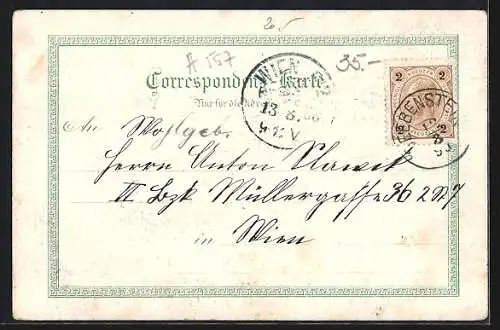 25.-
A 157
35.-
Correspondenz-Karte
Nur für die Adresse
WIEN
13.8.
9 1/2 V
2 2
SEEBENSTEIN
An Wohlgeb.
Herrn Anton Slawik
VI Bzk Müllergasse 36 2 27
in Wien